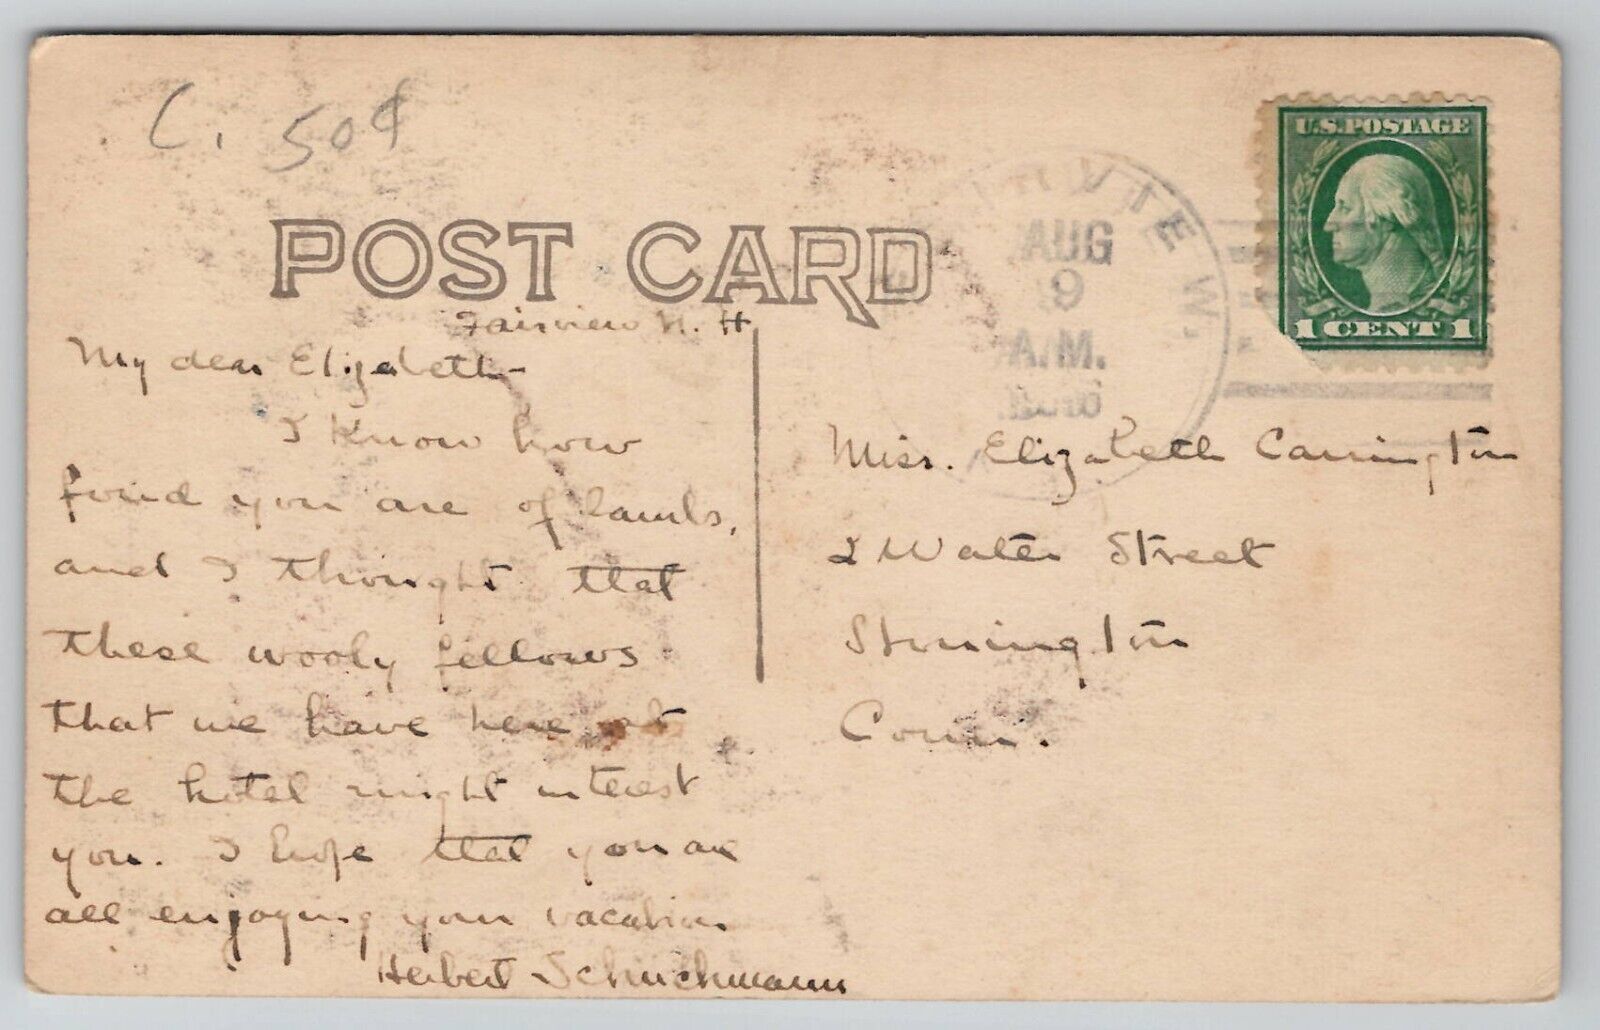 C. 50¢
U.S. POSTAGE
1 CENT 1
AUG
9
A.M.
POST CARD
Fairview N. H
My dear Elizabeth-
I know how
fond you are of lambs,
and I thought that
these wooly fellows
that we have here at
the hotel might interest
you. I hope that you are
all enjoying your vacation
Herbert Schuchmann
Miss. Elizabeth Carrington
2 Water Street
Stonington
Conn.